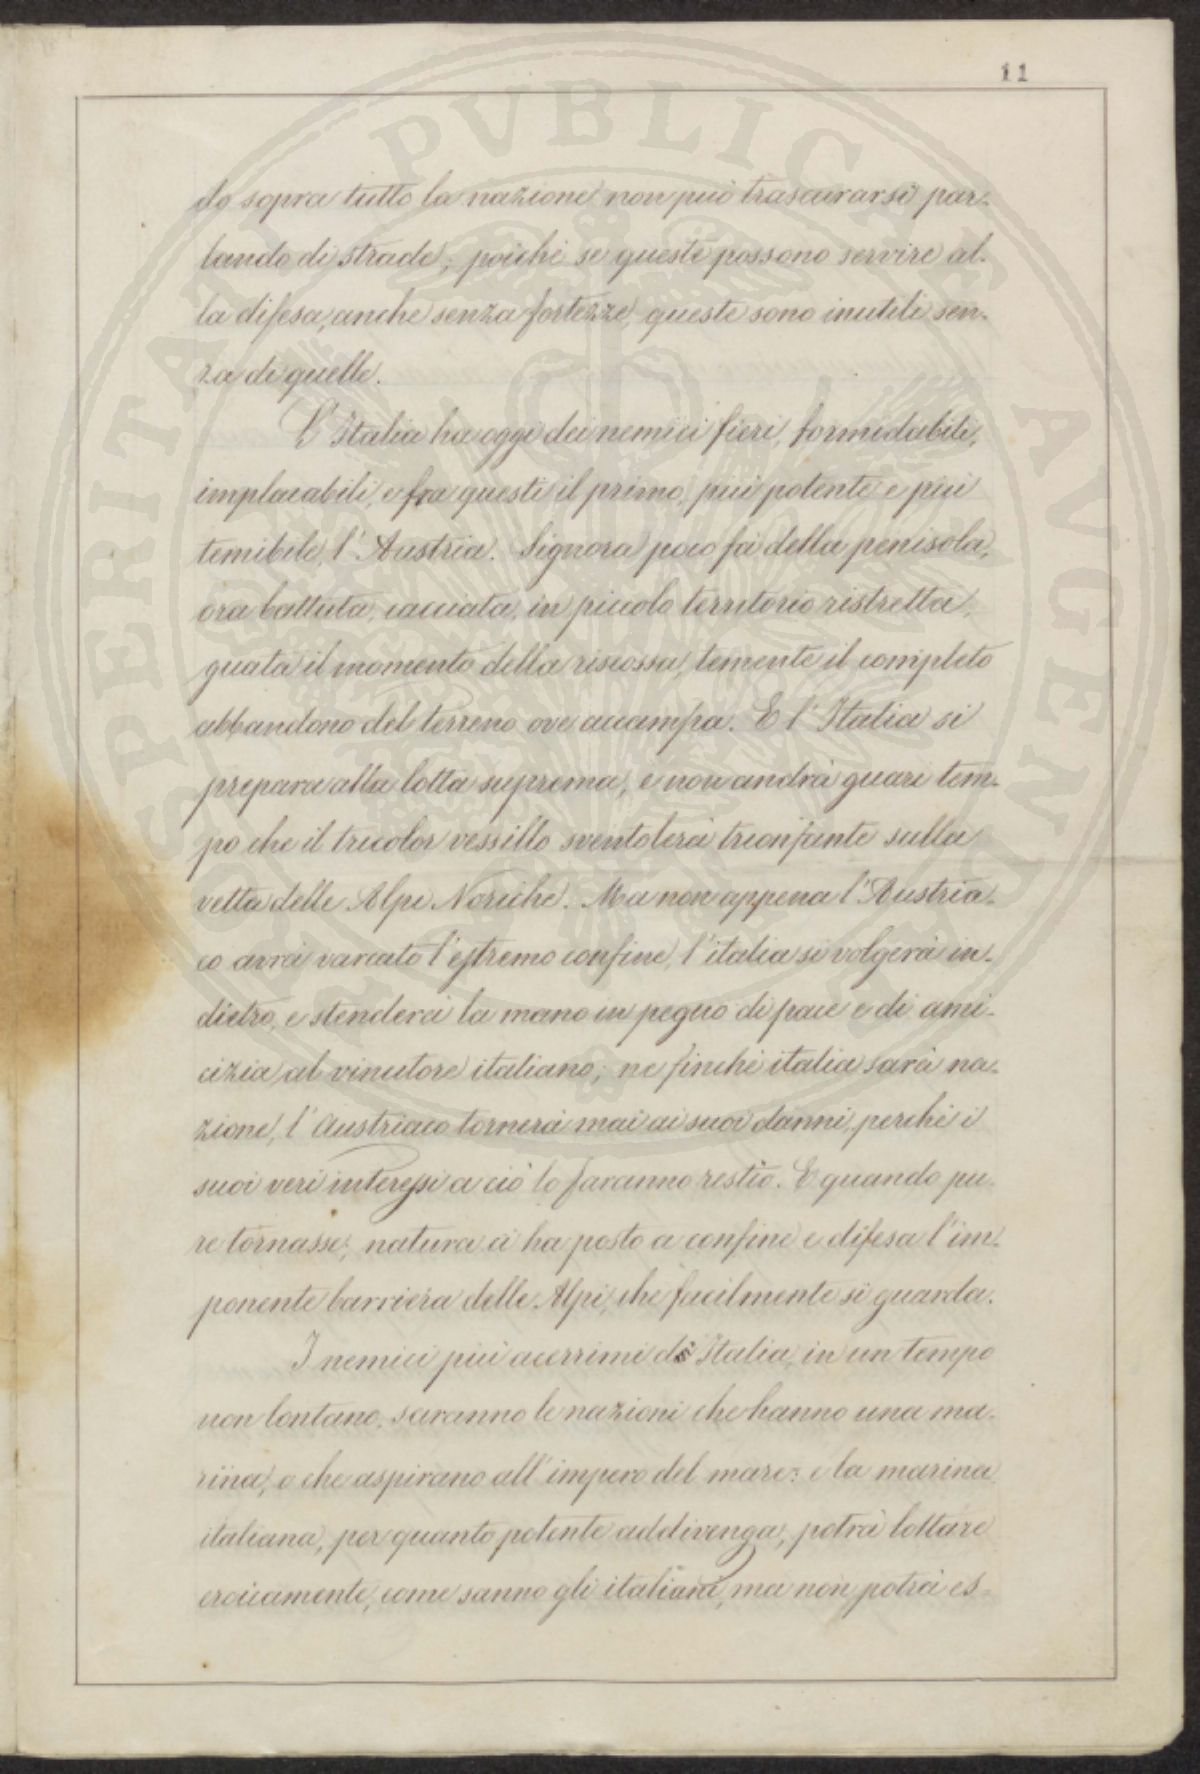 11
do sopra tutto la nazione non può trascurarsi par-
lando di strade; poichè se queste possono servire al-
la difesa, anche senza fortezze, queste sono inutili sen-
za di quelle.
L'Italia ha oggi dei nemici fieri, formidabili,
implacabili, e fra questi il primo, più potente e più
temibile, l'Austria. Signora poco fa della penisola,
ora battuta, cacciata, in piccolo territorio ristretta,
guata il momento della riscossa, temente il completo
abbandono del terreno ove accampa. E l'Italia si
prepara alla lotta suprema, e non andrà guari tem-
po che il tricolor vessillo sventolerà trionfante sulla
vetta delle Alpi Noriche. Ma non appena l'Austria-
co avrà varcato l'estremo confine, l'italia si volgerà in-
dietro, e stenderà la mano in pegno di pace e di ami-
cizia al vincitore italiano; ne finchè italia sarà na-
zione, l'Austriaco tornerà mai ai suoi danni, perchè i
suoi veri interessi a ciò lo faranno restìo. E quando pu-
re tornasse; natura ci ha posto a confine e difesa l'im-
ponente barriera delle Alpi, che facilmente si guarda.
I nemici più acerrimi di Italia, in un tempo
non lontano, saranno le nazioni che hanno una ma-
rina, o che aspirano all'impero del mare: e la marina
italiana, per quanto potente addivenga, potrà lottare
eroicamente, come sanno gli italiani, ma non potrà es-
PROSPERITATI PVBLICAE AVGENDAE